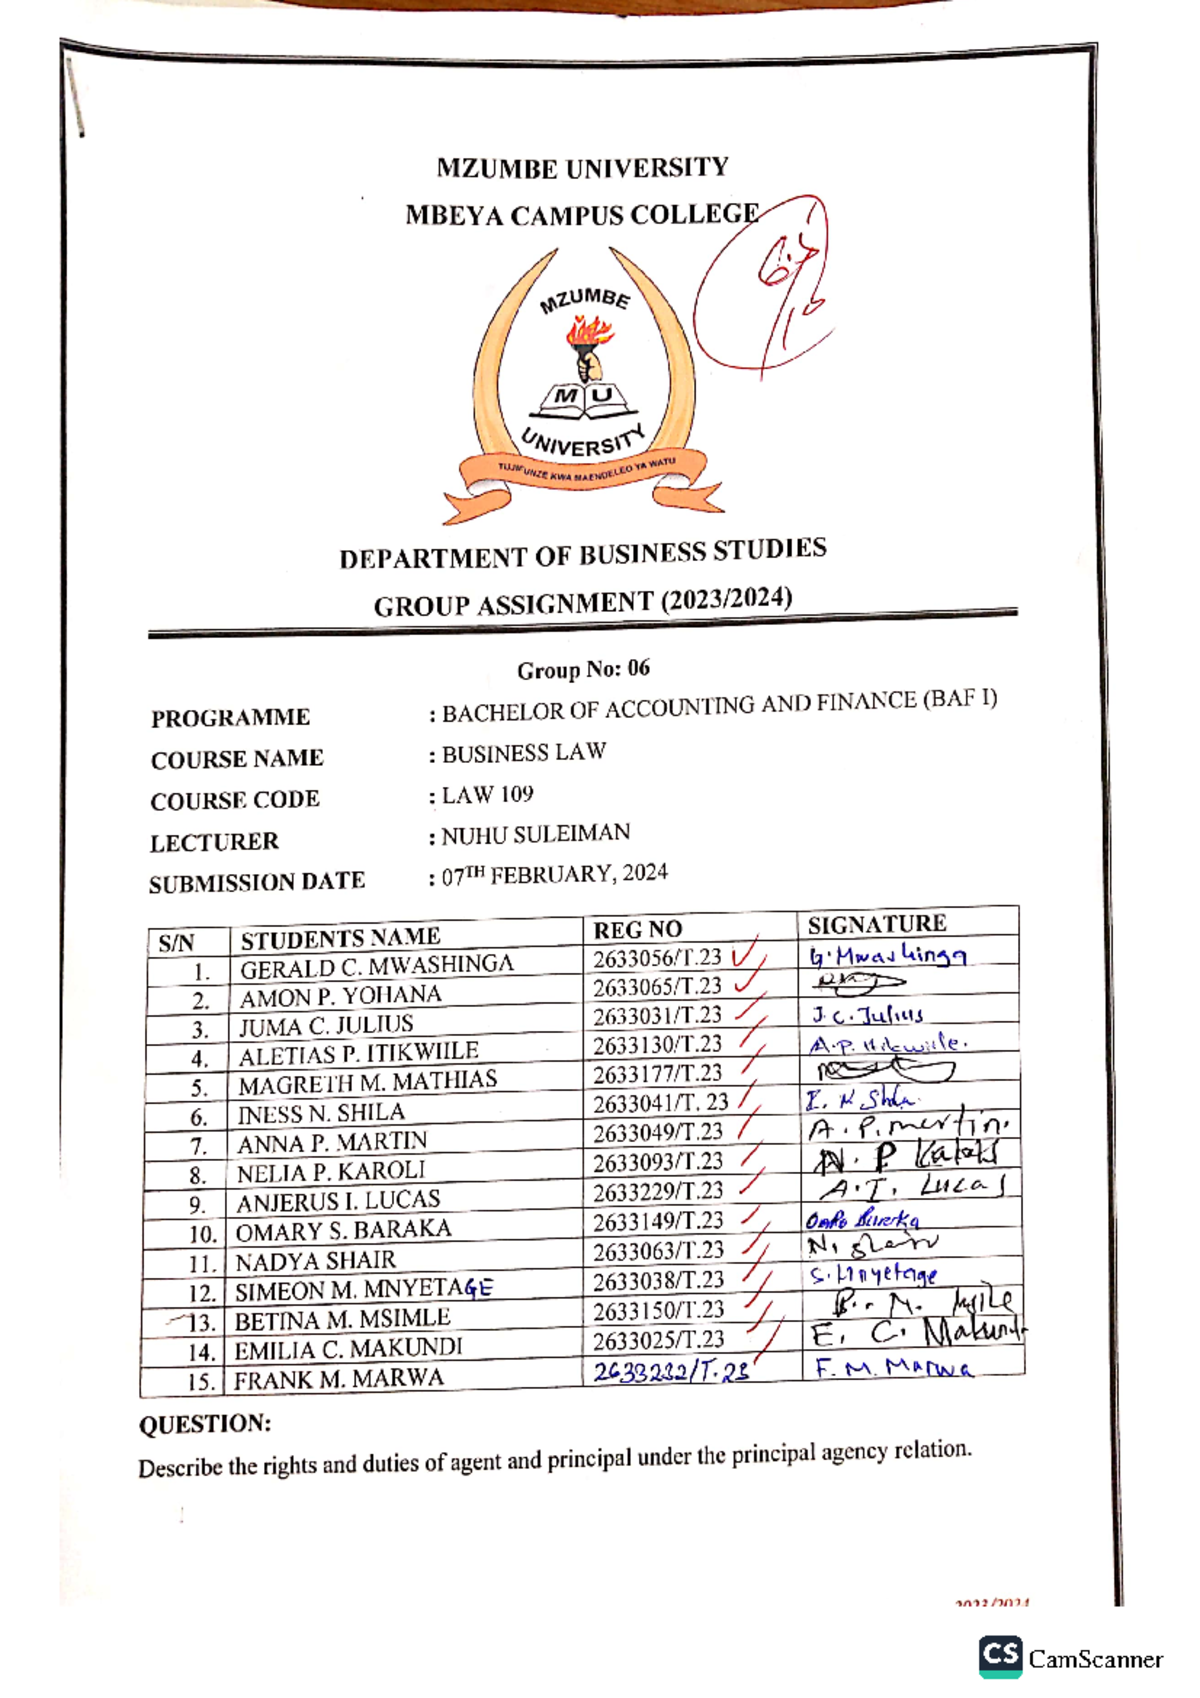 MZUMBE UNIVERSITY
MBEYA CAMPUS COLLEGE
6.5/10
MZUMBE
M U
UNIVERSITY
TUJIFUNZE KWA MAENDELEO YA WATU
DEPARTMENT OF BUSINESS STUDIES
GROUP ASSIGNMENT (2023/2024)
Group No: 06
PROGRAMME : BACHELOR OF ACCOUNTING AND FINANCE (BAF I)
COURSE NAME : BUSINESS LAW
COURSE CODE : LAW 109
LECTURER : NUHU SULEIMAN
SUBMISSION DATE : 07TH FEBRUARY, 2024
S/N STUDENTS NAME REG NO SIGNATURE
1. GERALD C. MWASHINGA 2633056/T.23 G.Mwashinga
2. AMON P. YOHANA 2633065/T.23
3. JUMA C. JULIUS 2633031/T.23 J.C.Julius
4. ALETIAS P. ITIKWIILE 2633130/T.23 A.P. Itikwiile.
5. MAGRETH M. MATHIAS 2633177/T.23
6. INESS N. SHILA 2633041/T. 23 I. N Shila
7. ANNA P. MARTIN 2633049/T.23 A.P.martin.
8. NELIA P. KAROLI 2633093/T.23 N. P Karoli
9. ANJERUS I. LUCAS 2633229/T.23 A.I. Lucas
10. OMARY S. BARAKA 2633149/T.23
11. NADYA SHAIR 2633063/T.23 N. Shair
12. SIMEON M. MNYETAGE 2633038/T.23 S.Mnyetage
13. BETINA M. MSIMLE 2633150/T.23 B. M.
14. EMILIA C. MAKUNDI 2633025/T.23 E. C. Makundi
15. FRANK M. MARWA 2633232/T.23 F. M. Marwa
QUESTION:
Describe the rights and duties of agent and principal under the principal agency relation.
2023/2024
CS CamScanner